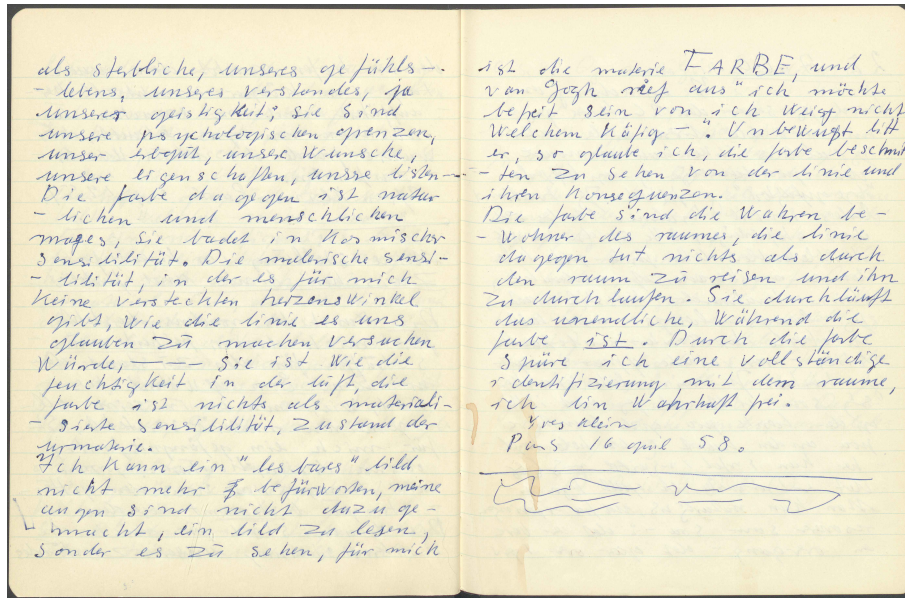 als sterbliche, unseres gefühls-
- lebens, unseres verstandes, ja
unserer geistigkeit; sie sind
unsere psychologischen grenzen,
unser erbgut, unsere Wünsche,
unsere eigenschaften, unsere listen -
Die farbe dagegen ist natür
- lichen und menschlichen
mages, sie badet in Kosmischer
Sensibilität. Die malerische sensi-
- bilität, in der es für mich
Keine versteckten herzenswinkel
gibt, wie die linie es uns
glauben zu machen versuchen
Würde, —— Sie ist wie die
feuchtigkeit in der luft, die
farbe ist nichts als materiali-
- sierte Sensibilität, Zustand der
urmaterie.
Ich Kann ein "lesbares" bild
nicht mehr befürworten, meine
augen sind nicht dazu ge-
- macht, ein bild zu lesen,
sonder es zu sehen, für mich
ist die materie FARBE, und
van Gogh rief aus "ich möchte
befreit sein von ich weiss nicht
welchem Käfig -". Unbewugt litt
er, so glaube ich, die farbe beschnit
- ten zu sehen von der linie und
ihren Konsequenzen.
Die farbe sind die Wahren be-
- Wohner des raumes, die linie
dagegen tut nichts als durch
den raum zu reisen und ihn
zu durchlaufen. Sie durchläuft
das unendliche, Während die
farbe ist. Durch die farbe
Spüre ich eine vollständige
identifizierung mit dem raume,
ich bin Wahrhaft frei.
Yves Klein
Paris 16 april 58.